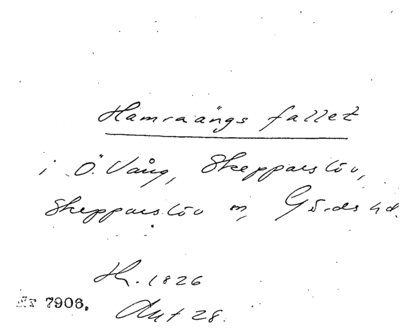 Hamraängs fallet
i Ö. Vång, Skepparslöv,
Skepparslöv sn, Gärds hd.
Hr. 1826
Nr 7906.
Akt 28.